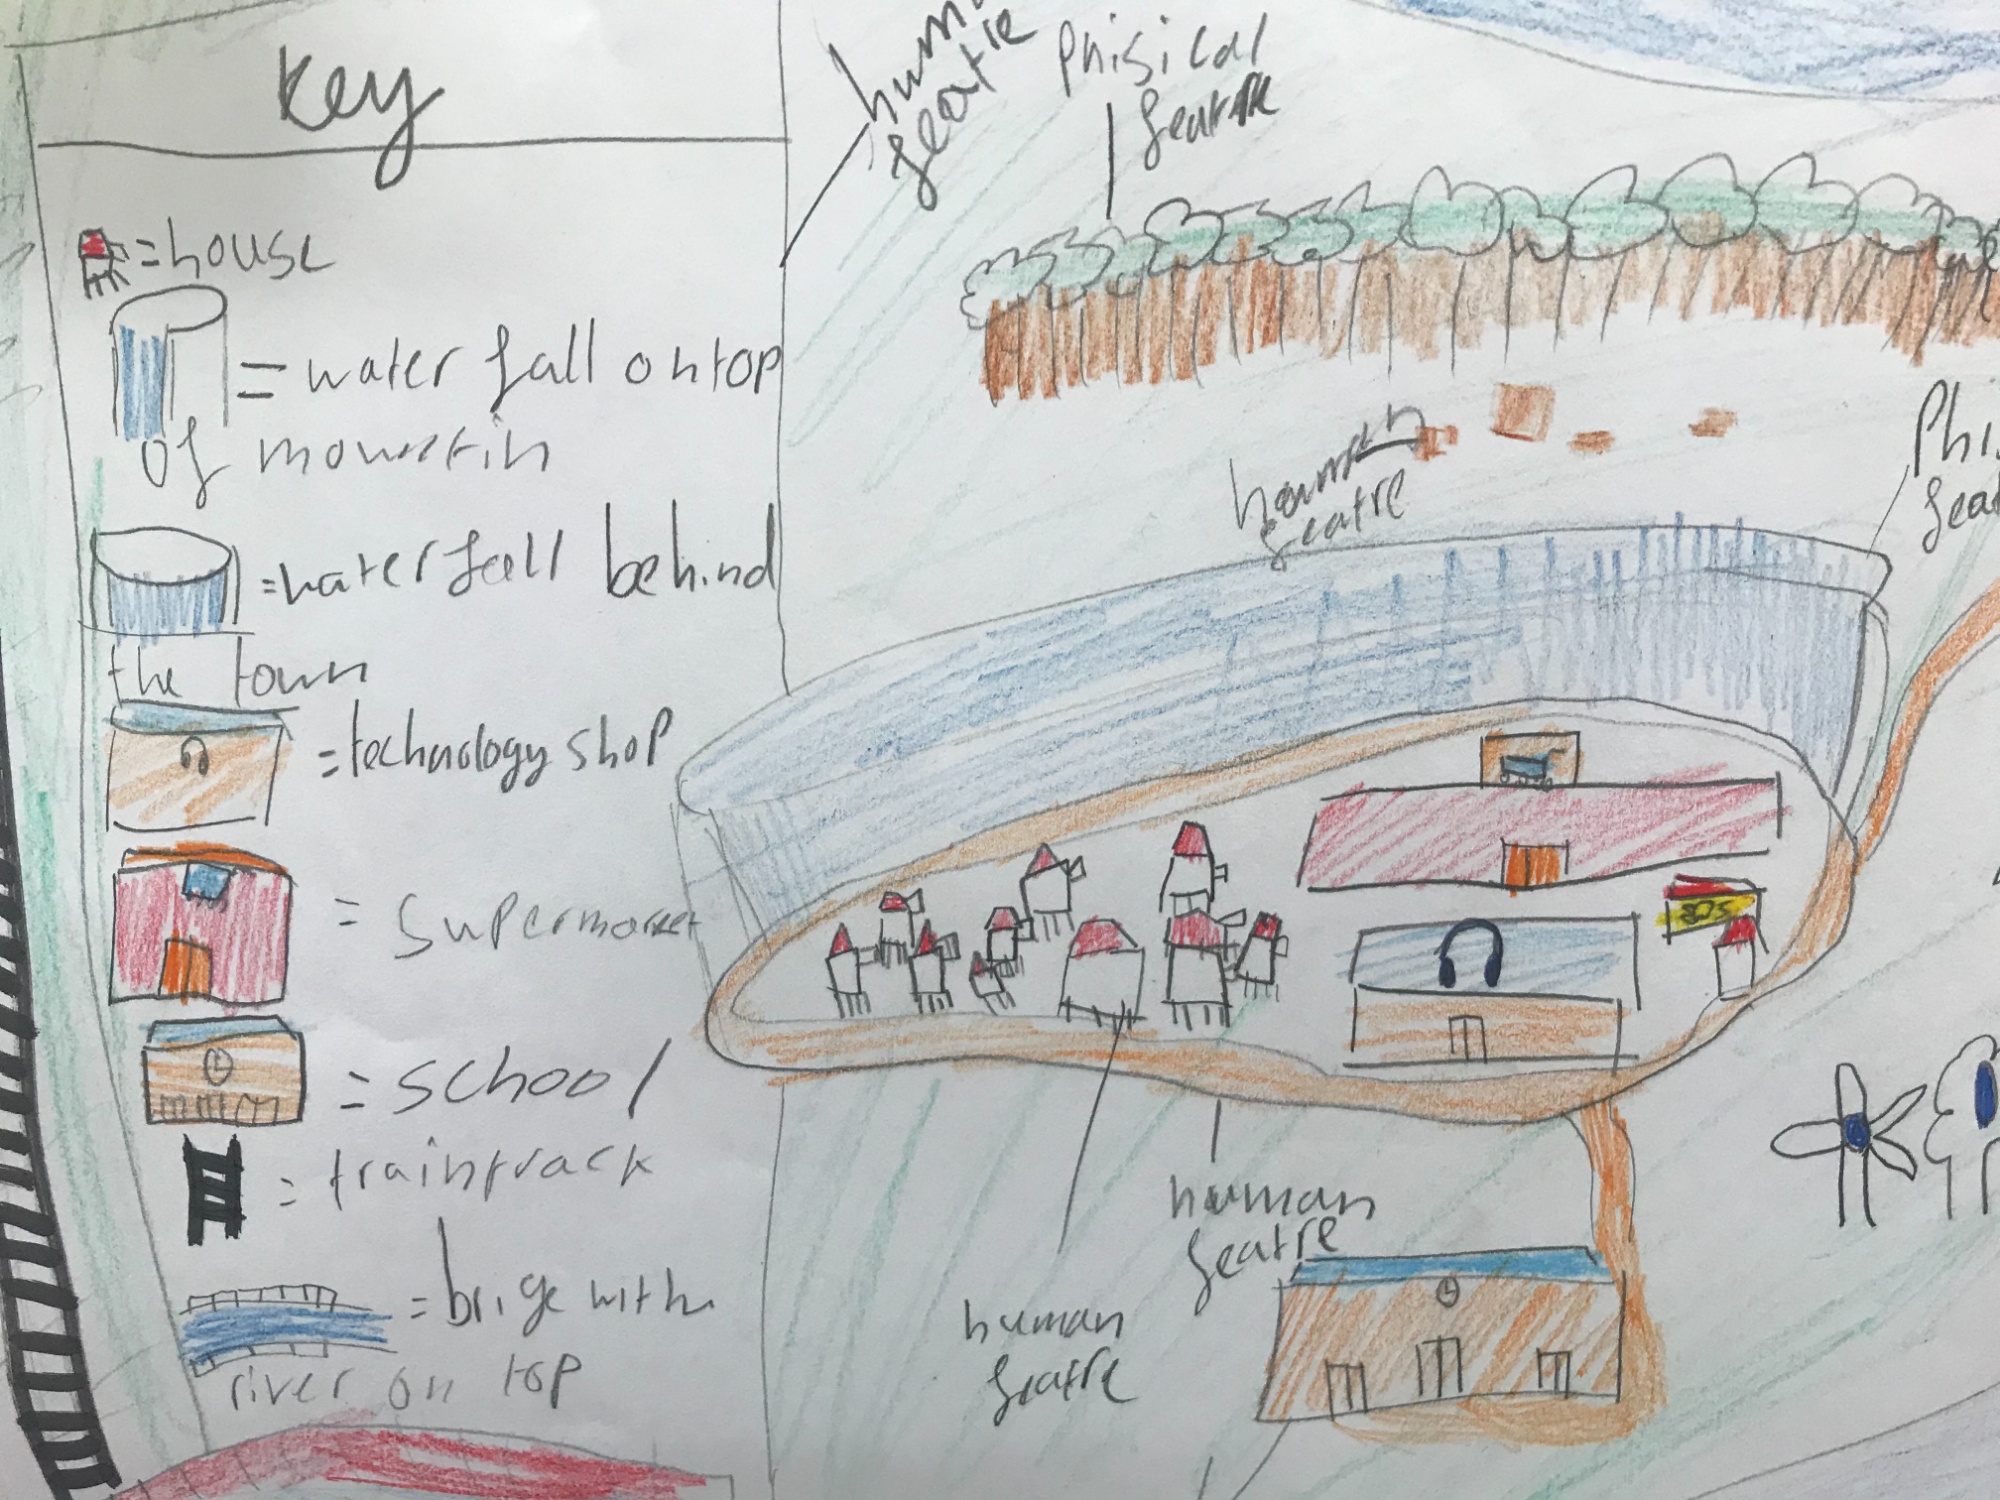 key
=house
= water fall ontop
of mowntin
=water fall behind
the town
=technology shop
= supermarket
=school
=traintrack
=brige with
river on top
Phisical
human
featre
human
featre
human
featre